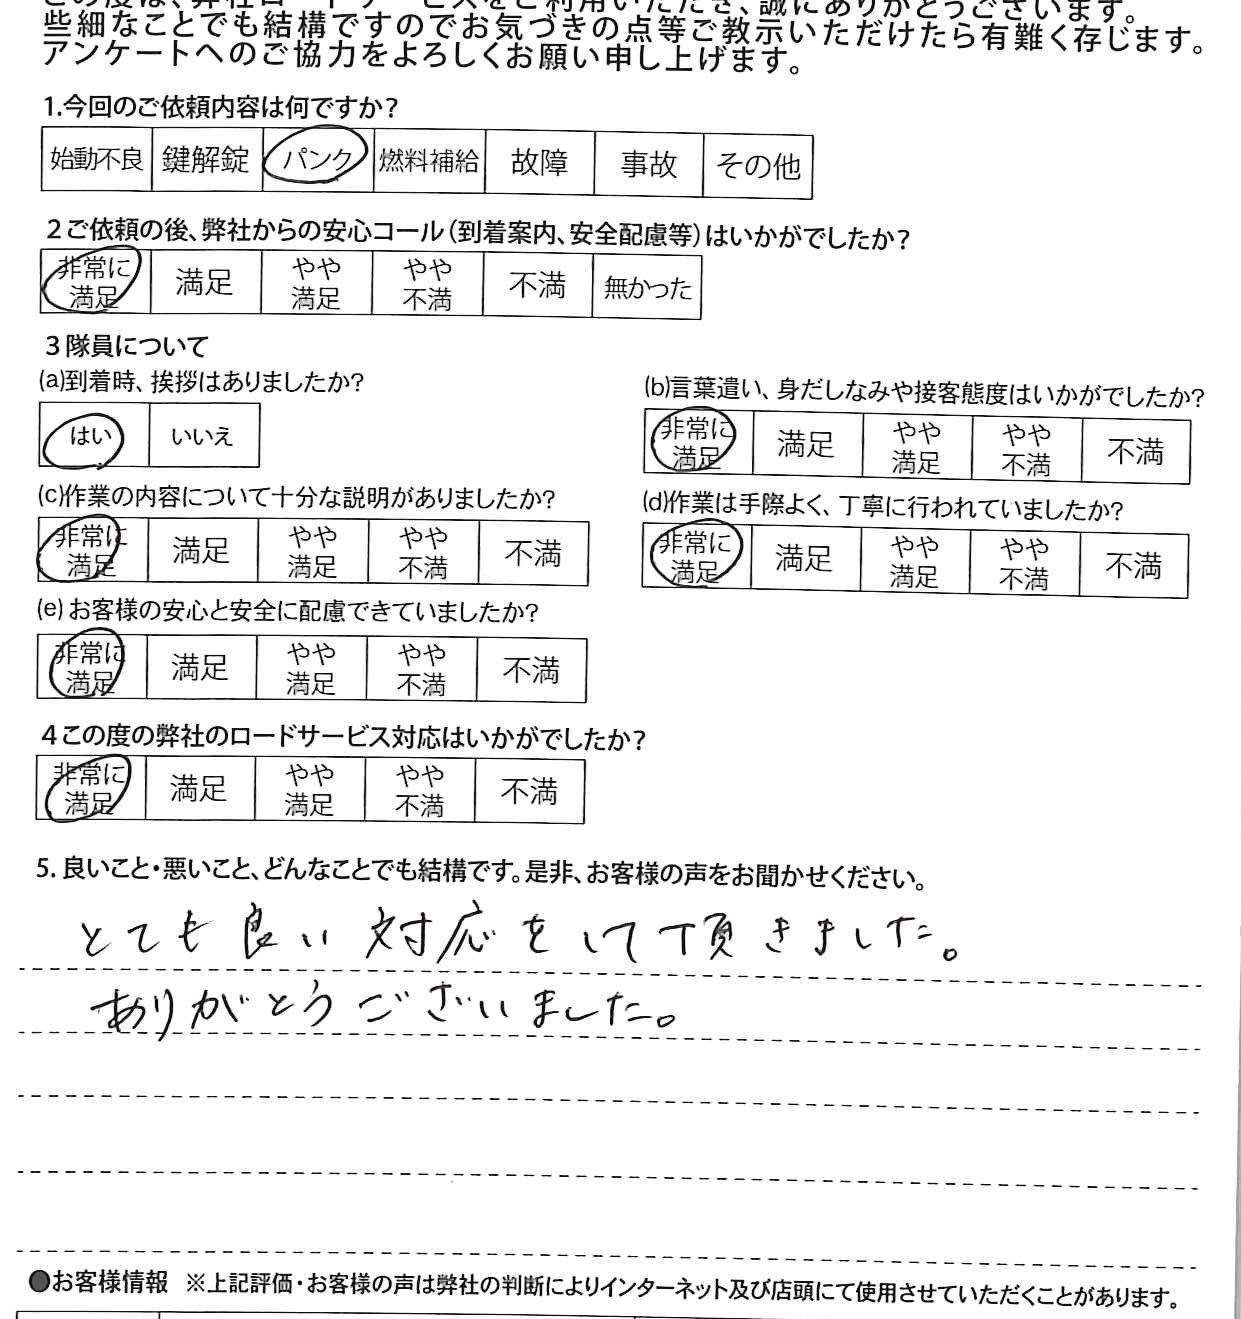 この度は、弊社ロードサービスをご利用いただき、誠にありがとうございます。
些細なことでも結構ですのでお気づきの点等ご教示いただけたら有難く存じます。
アンケートへのご協力をよろしくお願い申し上げます。
1.今回のご依頼内容は何ですか?
始動不良 鍵解錠 パンク 燃料補給 故障 事故 その他
2ご依頼の後、弊社からの安心コール(到着案内、安全配慮等)はいかがでしたか?
非常に満足 満足 やや満足 やや不満 不満 無かった
3隊員について
(a)到着時、挨拶はありましたか?
はい いいえ
(b)言葉遣い、身だしなみや接客態度はいかがでしたか?
非常に満足 満足 やや満足 やや不満 不満
(c)作業の内容について十分な説明がありましたか?
非常に満足 満足 やや満足 やや不満 不満
(d)作業は手際よく、丁寧に行われていましたか?
非常に満足 満足 やや満足 やや不満 不満
(e)お客様の安心と安全に配慮できていましたか?
非常に満足 満足 やや満足 やや不満 不満
4この度の弊社のロードサービス対応はいかがでしたか?
非常に満足 満足 やや満足 やや不満 不満
5.良いこと・悪いこと、どんなことでも結構です。是非、お客様の声をお聞かせください。
とても良い対応をして頂きました。
ありがとうございました。
●お客様情報 ※上記評価・お客様の声は弊社の判断によりインターネット及び店頭にて使用させていただくことがあります。